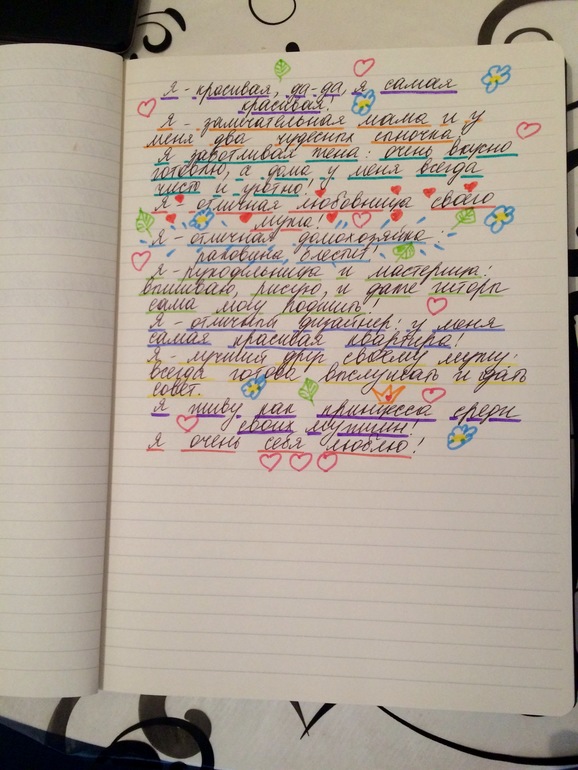 Я - красивая, да-да, я самая
красивая!
Я - замечательная мама и у
меня два чудесных сыночка!
Я заботливая жена: очень вкусно
готовлю, а дома у меня всегда
чисто и уютно!
Я - отличная любовница своего
мужа!
Я - отличная домохозяйка:
раковина блестит!
Я - рукодельница и мастерица:
вышиваю, рисую, и даже шторы
сама могу подшить!
Я - отличный дизайнер: у меня
самая красивая квартира!
Я - лучший друг своему мужу:
всегда готова выслушать и дать
совет.
Я живу как принцесса среди
своих мужчин!
Я очень себя люблю!